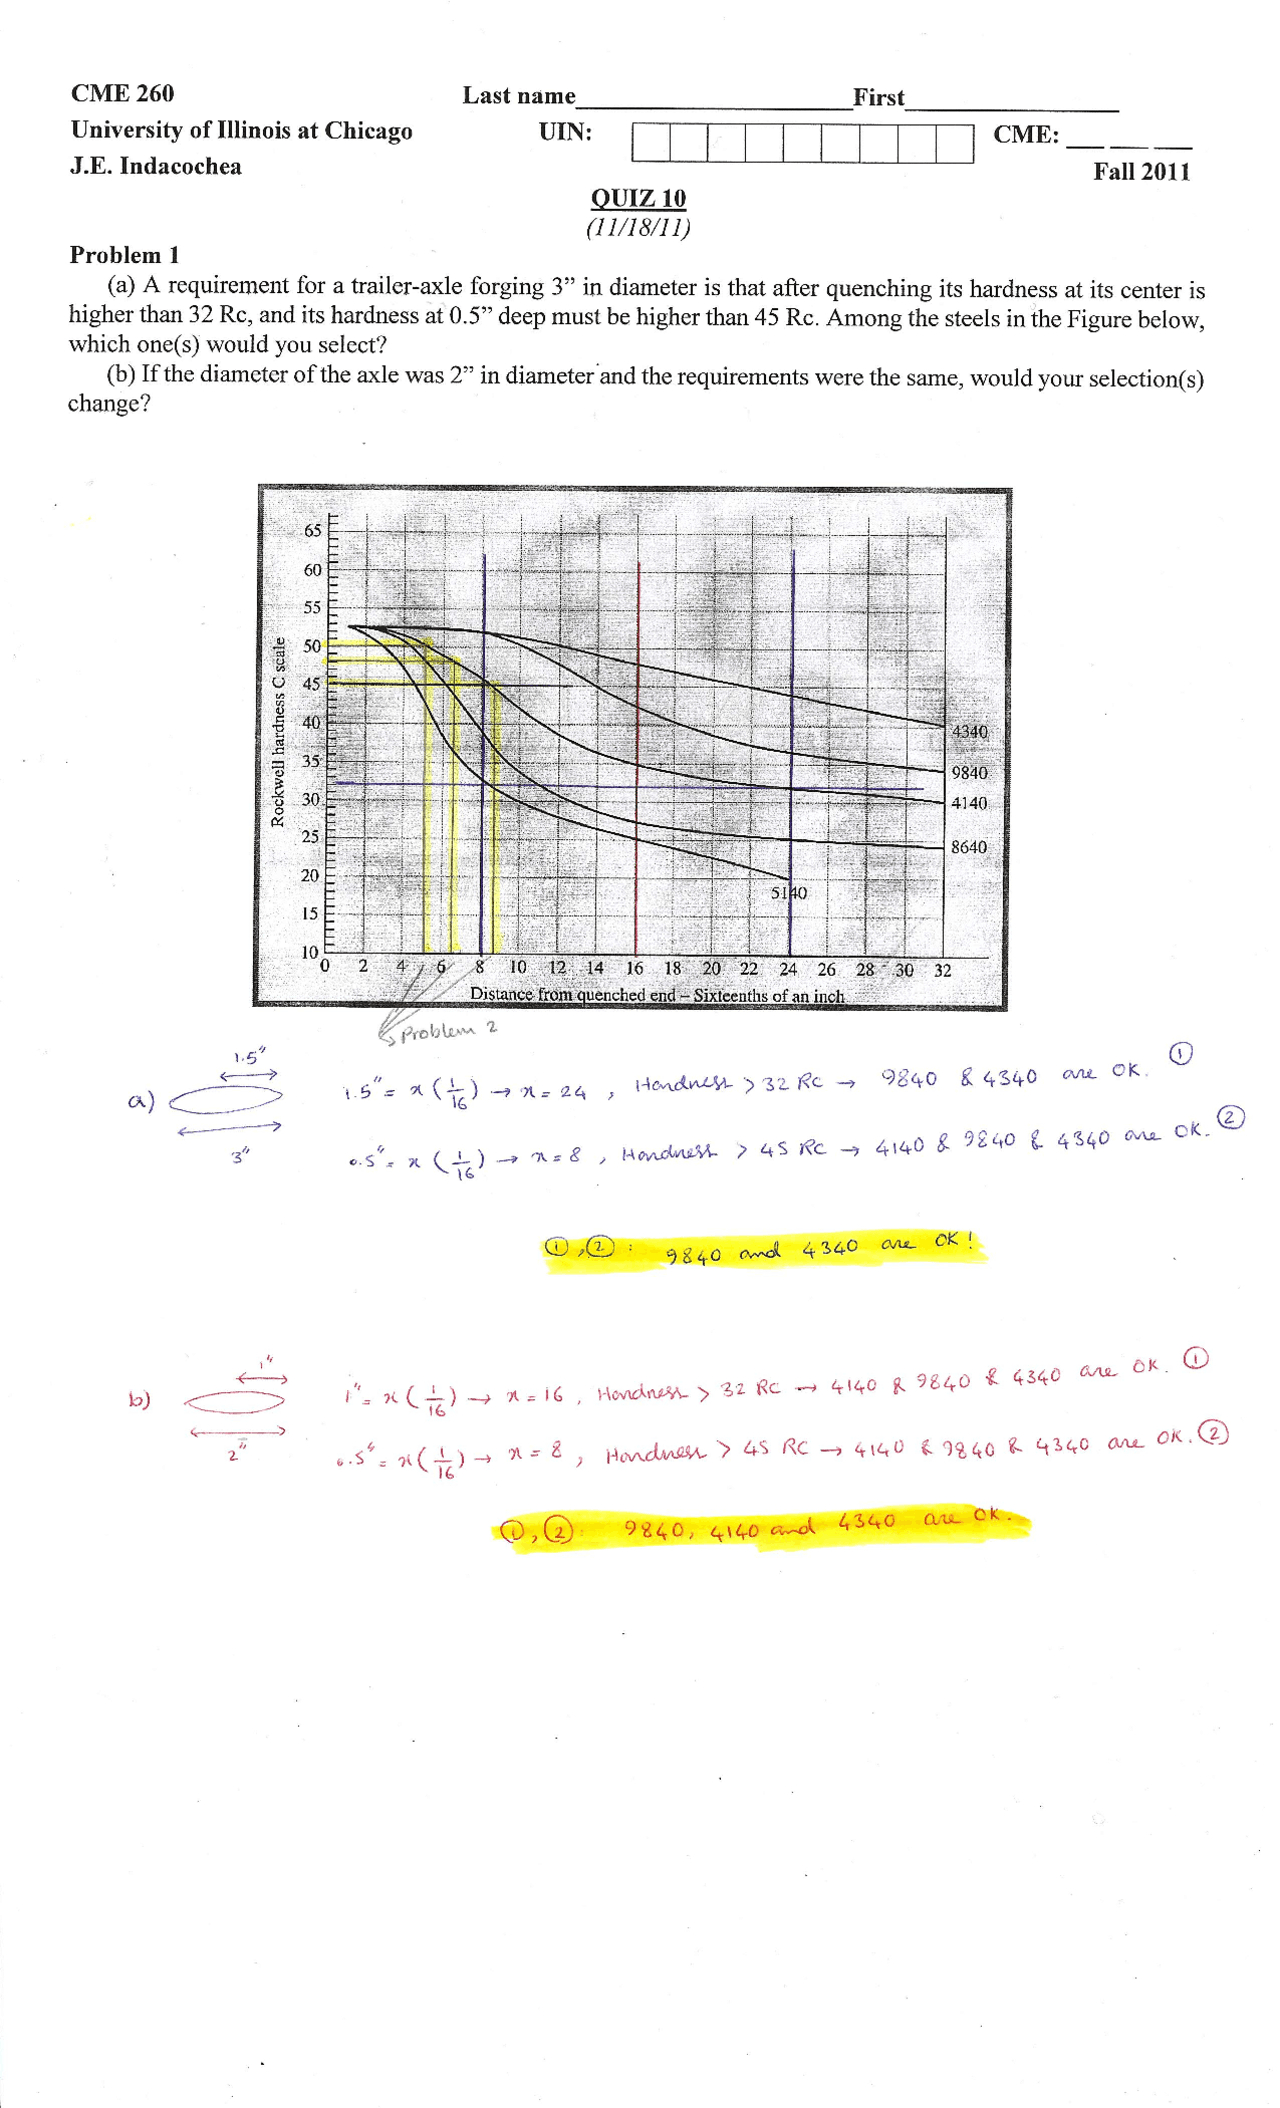 CME 260 Last name______ First______
University of Illinois at Chicago UIN: CME: ___ ___ ___
J.E. Indacochea Fall 2011
QUIZ 10
(11/18/11)
Problem 1
(a) A requirement for a trailer-axle forging 3” in diameter is that after quenching its hardness at its center is
higher than 32 Rc, and its hardness at 0.5” deep must be higher than 45 Rc. Among the steels in the Figure below,
which one(s) would you select?
(b) If the diameter of the axle was 2” in diameter and the requirements were the same, would your selection(s)
change?
Rockwell hardness C scale
65
60
55
50
45
40
35
30
25
20
15
10
4340
9840
4140
8640
5140
0 2 4 6 8 10 12 14 16 18 20 22 24 26 28 30 32
Distance from quenched end – Sixteenths of an inch
Problem 2
a) 1.5" 3"
1.5" = x (1/16) → x = 24 , Hardness > 32 RC → 9840 & 4340 are OK. ①
0.5" = x (1/16) → x = 8 , Hardness > 45 RC → 4140 & 9840 & 4340 are OK. ②
①,② : 9840 and 4340 are OK!
b) 1" 2"
1" = x (1/16) → x = 16 , Hardness > 32 RC → 4140 & 9840 & 4340 are OK. ①
0.5" = x (1/16) → x = 8 , Hardness > 45 RC → 4140 & 9840 & 4340 are OK. ②
①,② : 9840, 4140 and 4340 are OK.